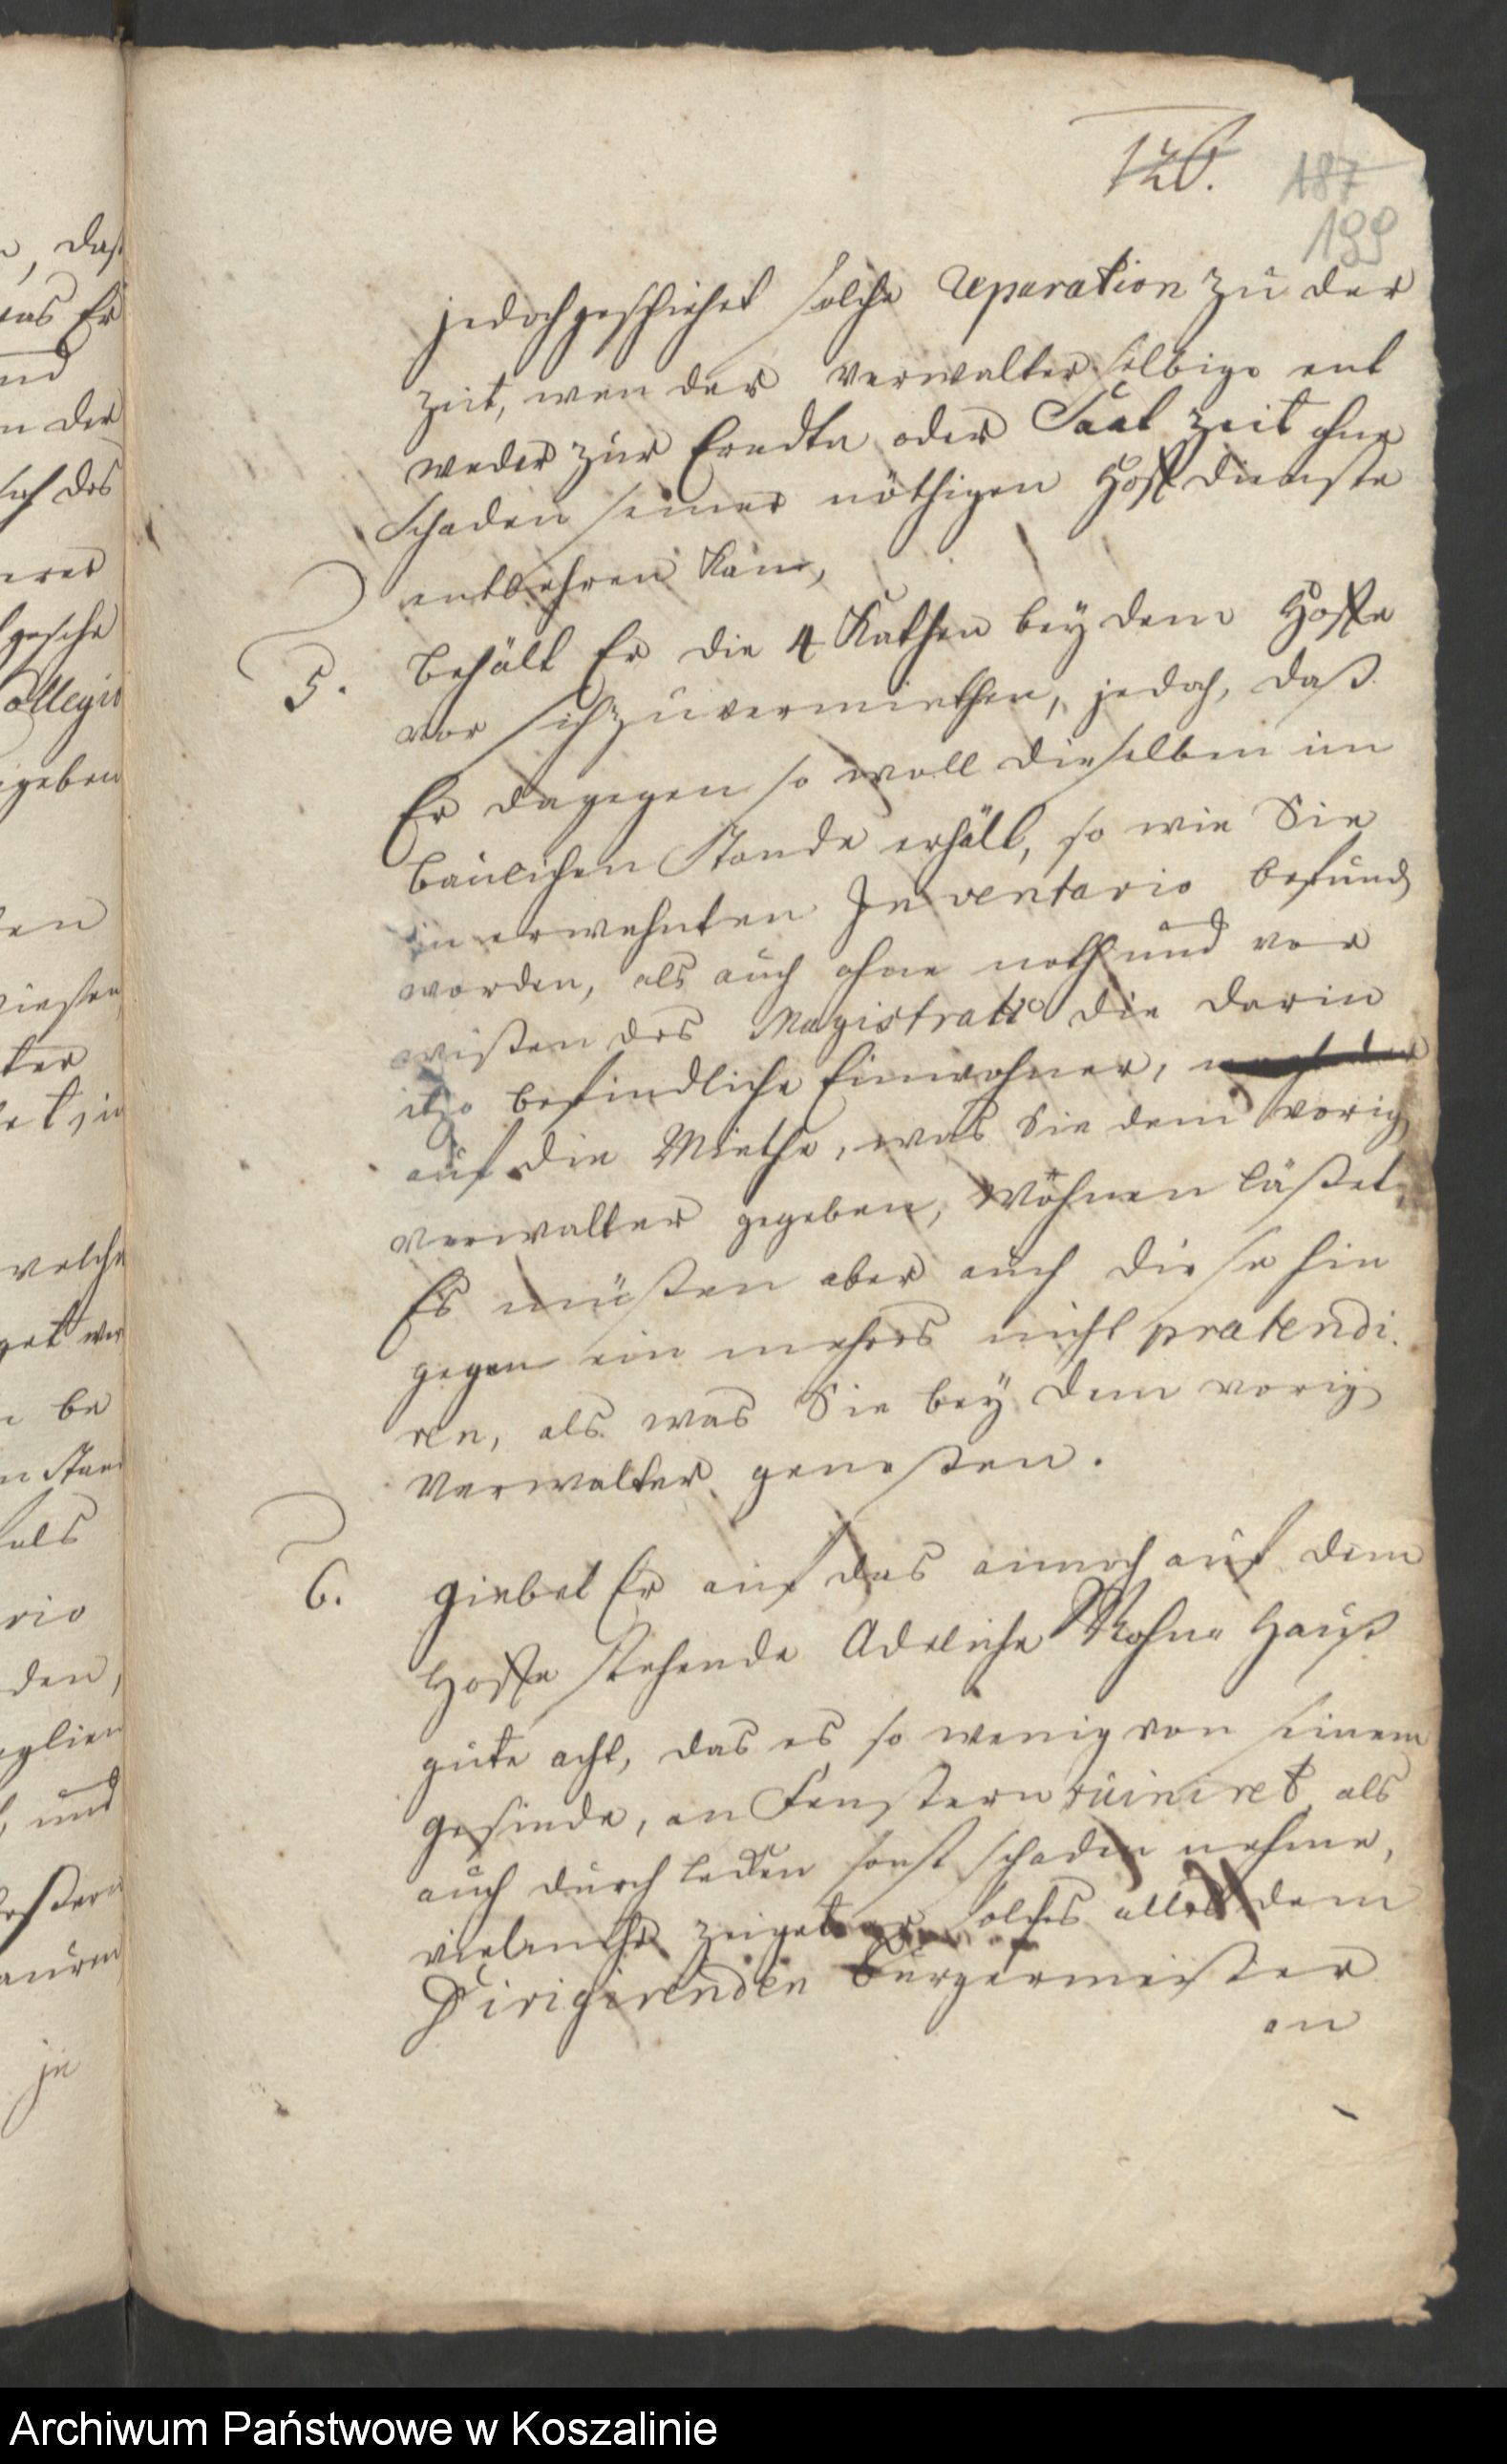 126.
187
199
jedoch geschiehet solche reparation zu der
zeit, wen der Verwalter selbige ent
weder zur Erndte oder Saat zeit ohne
Schaden seiner nöthigen Hoff dienste
entbehren kan,
5. Behält Er die 4 Kathen bey dem Hoffe
vor sich zu vermiethen, jedoch, daß
Er dagegen so woll dieselben im
baulichen Stande erhält, so wie Sie
in erwehnten Inventario befund
worden, als auch ohne noth und vor
wißen des Magistrats die darin
itzo befindliche Einwohner,
auf die Miethe, was Sie dem vorig
Verwalter gegeben, Wohnen läßet,
Es müßen aber auch diese hin
gegen ein mehres nicht prætendi.
ren, als was Sie bey dem vorig
Verwalter genoßen.
6. giebet Er auf das annoch auf dem
Hoffe stehende Adeliche Wohn Hauß
gute acht, das es so wenig von seinem
gesinde, an Fenstern ruiniret als
auch durch sonst schaden nehme,
vielmehr zeiget er solches alles dem
Dirigirenden Bürgermeister
an
n, daß
was Er
und
n der
des
gesche
Collegii
gegeben
den
ter
welche
be
als
rio
den,
, und
je
Archiwum Państwowe w Koszalinie